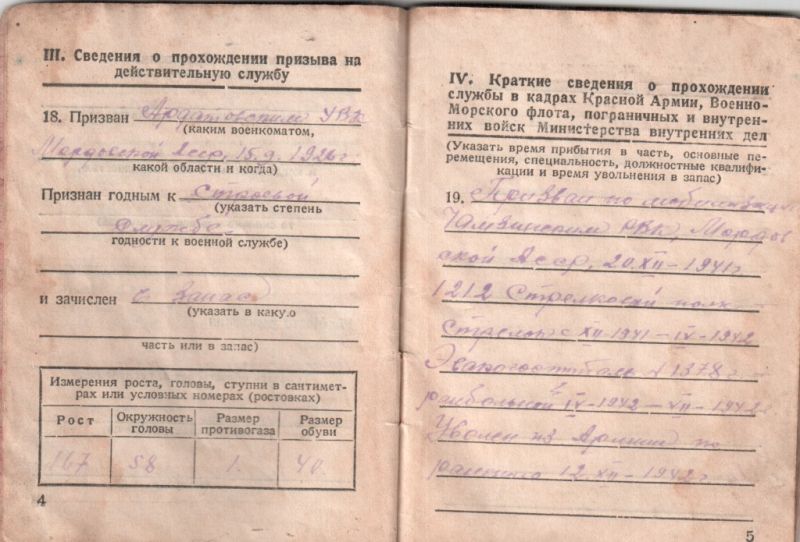 III. Сведения о прохождении призыва на
действительную службу
18. Призван Ардатовским УВК
(каким военкоматом,
Мордовской Асср, 15.9.1926г
какой области и когда)
Признан годным к Строевой
(указать степень
службе
годности к военной службе)
и зачислен в запас
(указать в какую
часть или в запас)
Измерения роста, головы, ступни в сантимет-
рах или условных номерах (ростовках)
Рост
Окружность
головы
Размер
противогаза
Размер
обуви
167 58 1. 40
4
IV. Краткие сведения о прохождении
службы в кадрах Красной Армии, Военно-
Морского флота, пограничных и внутрен-
них войск Министерства внутренних дел
(Указать время прибытия в часть, основные пе-
ремещения, специальность, должностные квалифи-
кации и время увольнения в запас)
19. Призван по мобилизации
Чамзинским РВК, Мордов
ской Асср, 20.XII-1941г
1212 Стрелковый полк
стрелок с XII-1941-IV-1942
Эвакогоспиталь 1378 г
IV-1942-VII-1942
Уволен из Армии по
ранению 12 XII-1942г
5